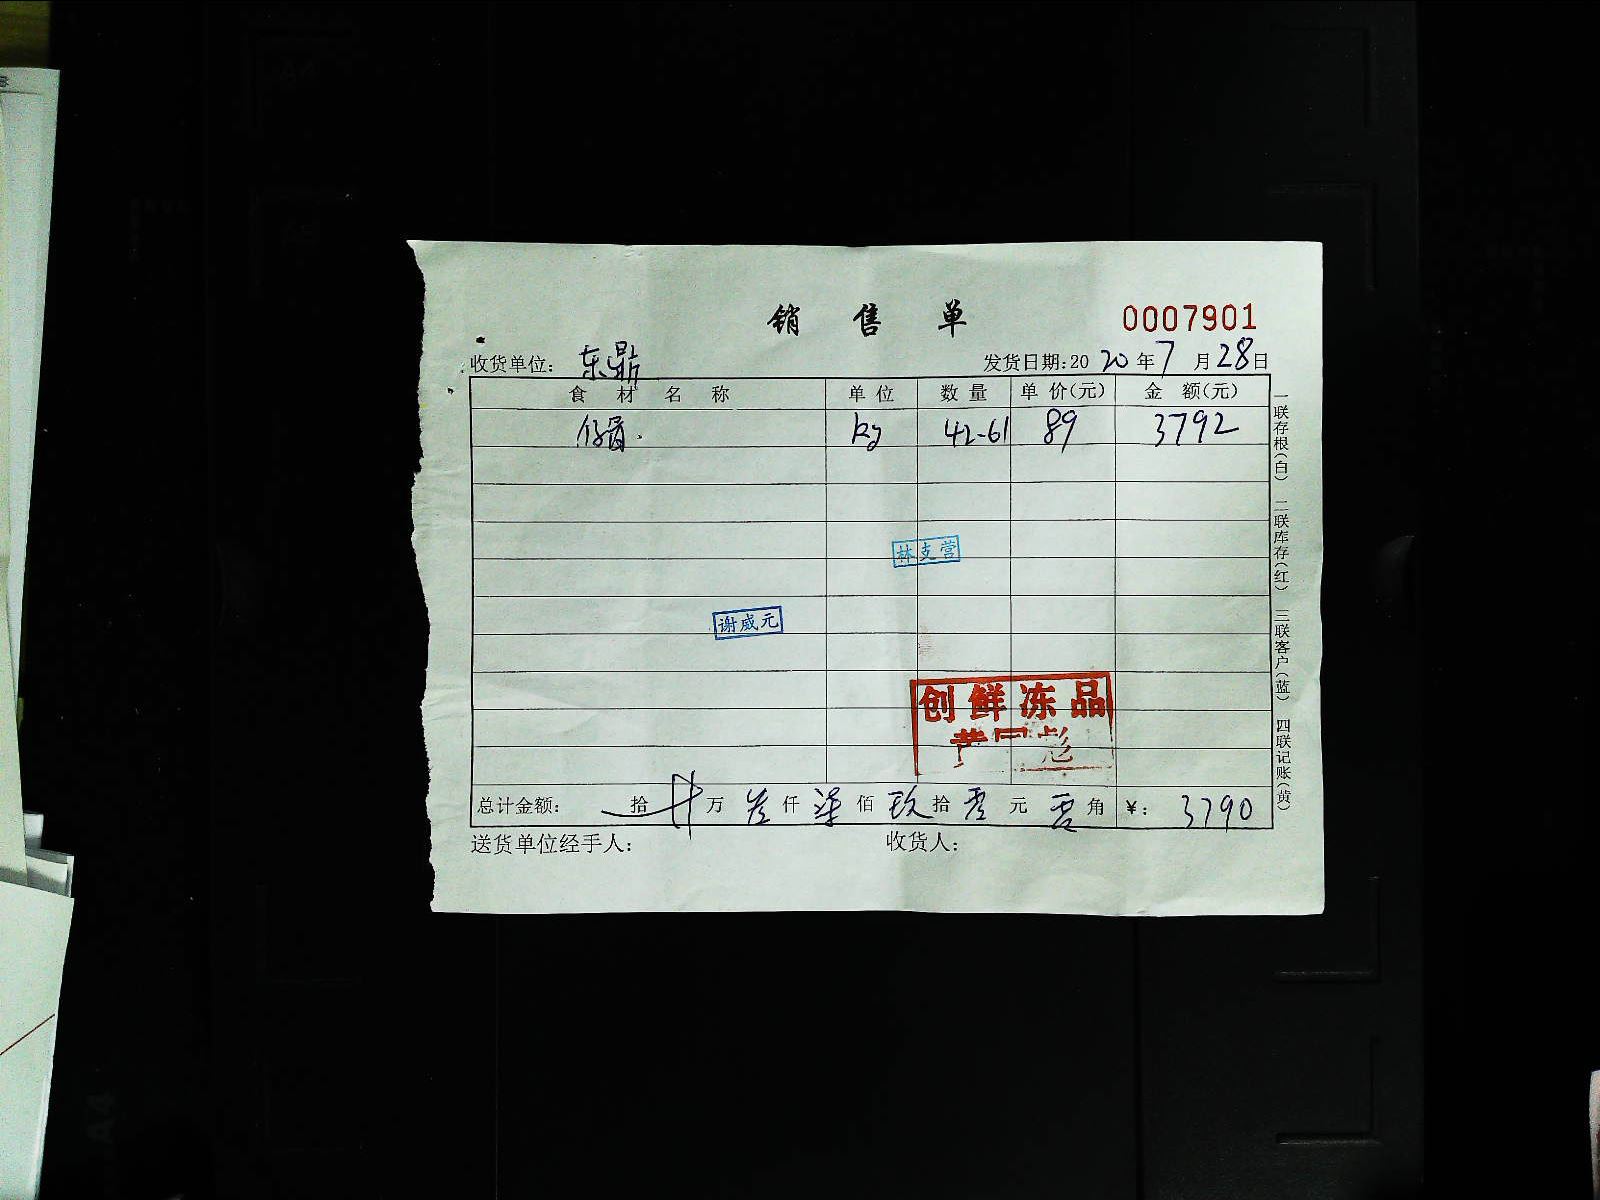 销 售 单 0007901
收货单位: 东鼎 发货日期:2020年7月28日
食 材 名 称 单 位 数 量 单 价(元) 金 额(元)
仔骨. kg 42-61 89 3792
林支营
谢威元
创鲜冻品
总计金额: 拾 万 叁仟柒佰玖拾零元零角 ¥: 3790
送货单位经手人: 收货人:
一联存根(白) 二联库存(红) 三联客户(蓝) 四联记账(黄)
A4